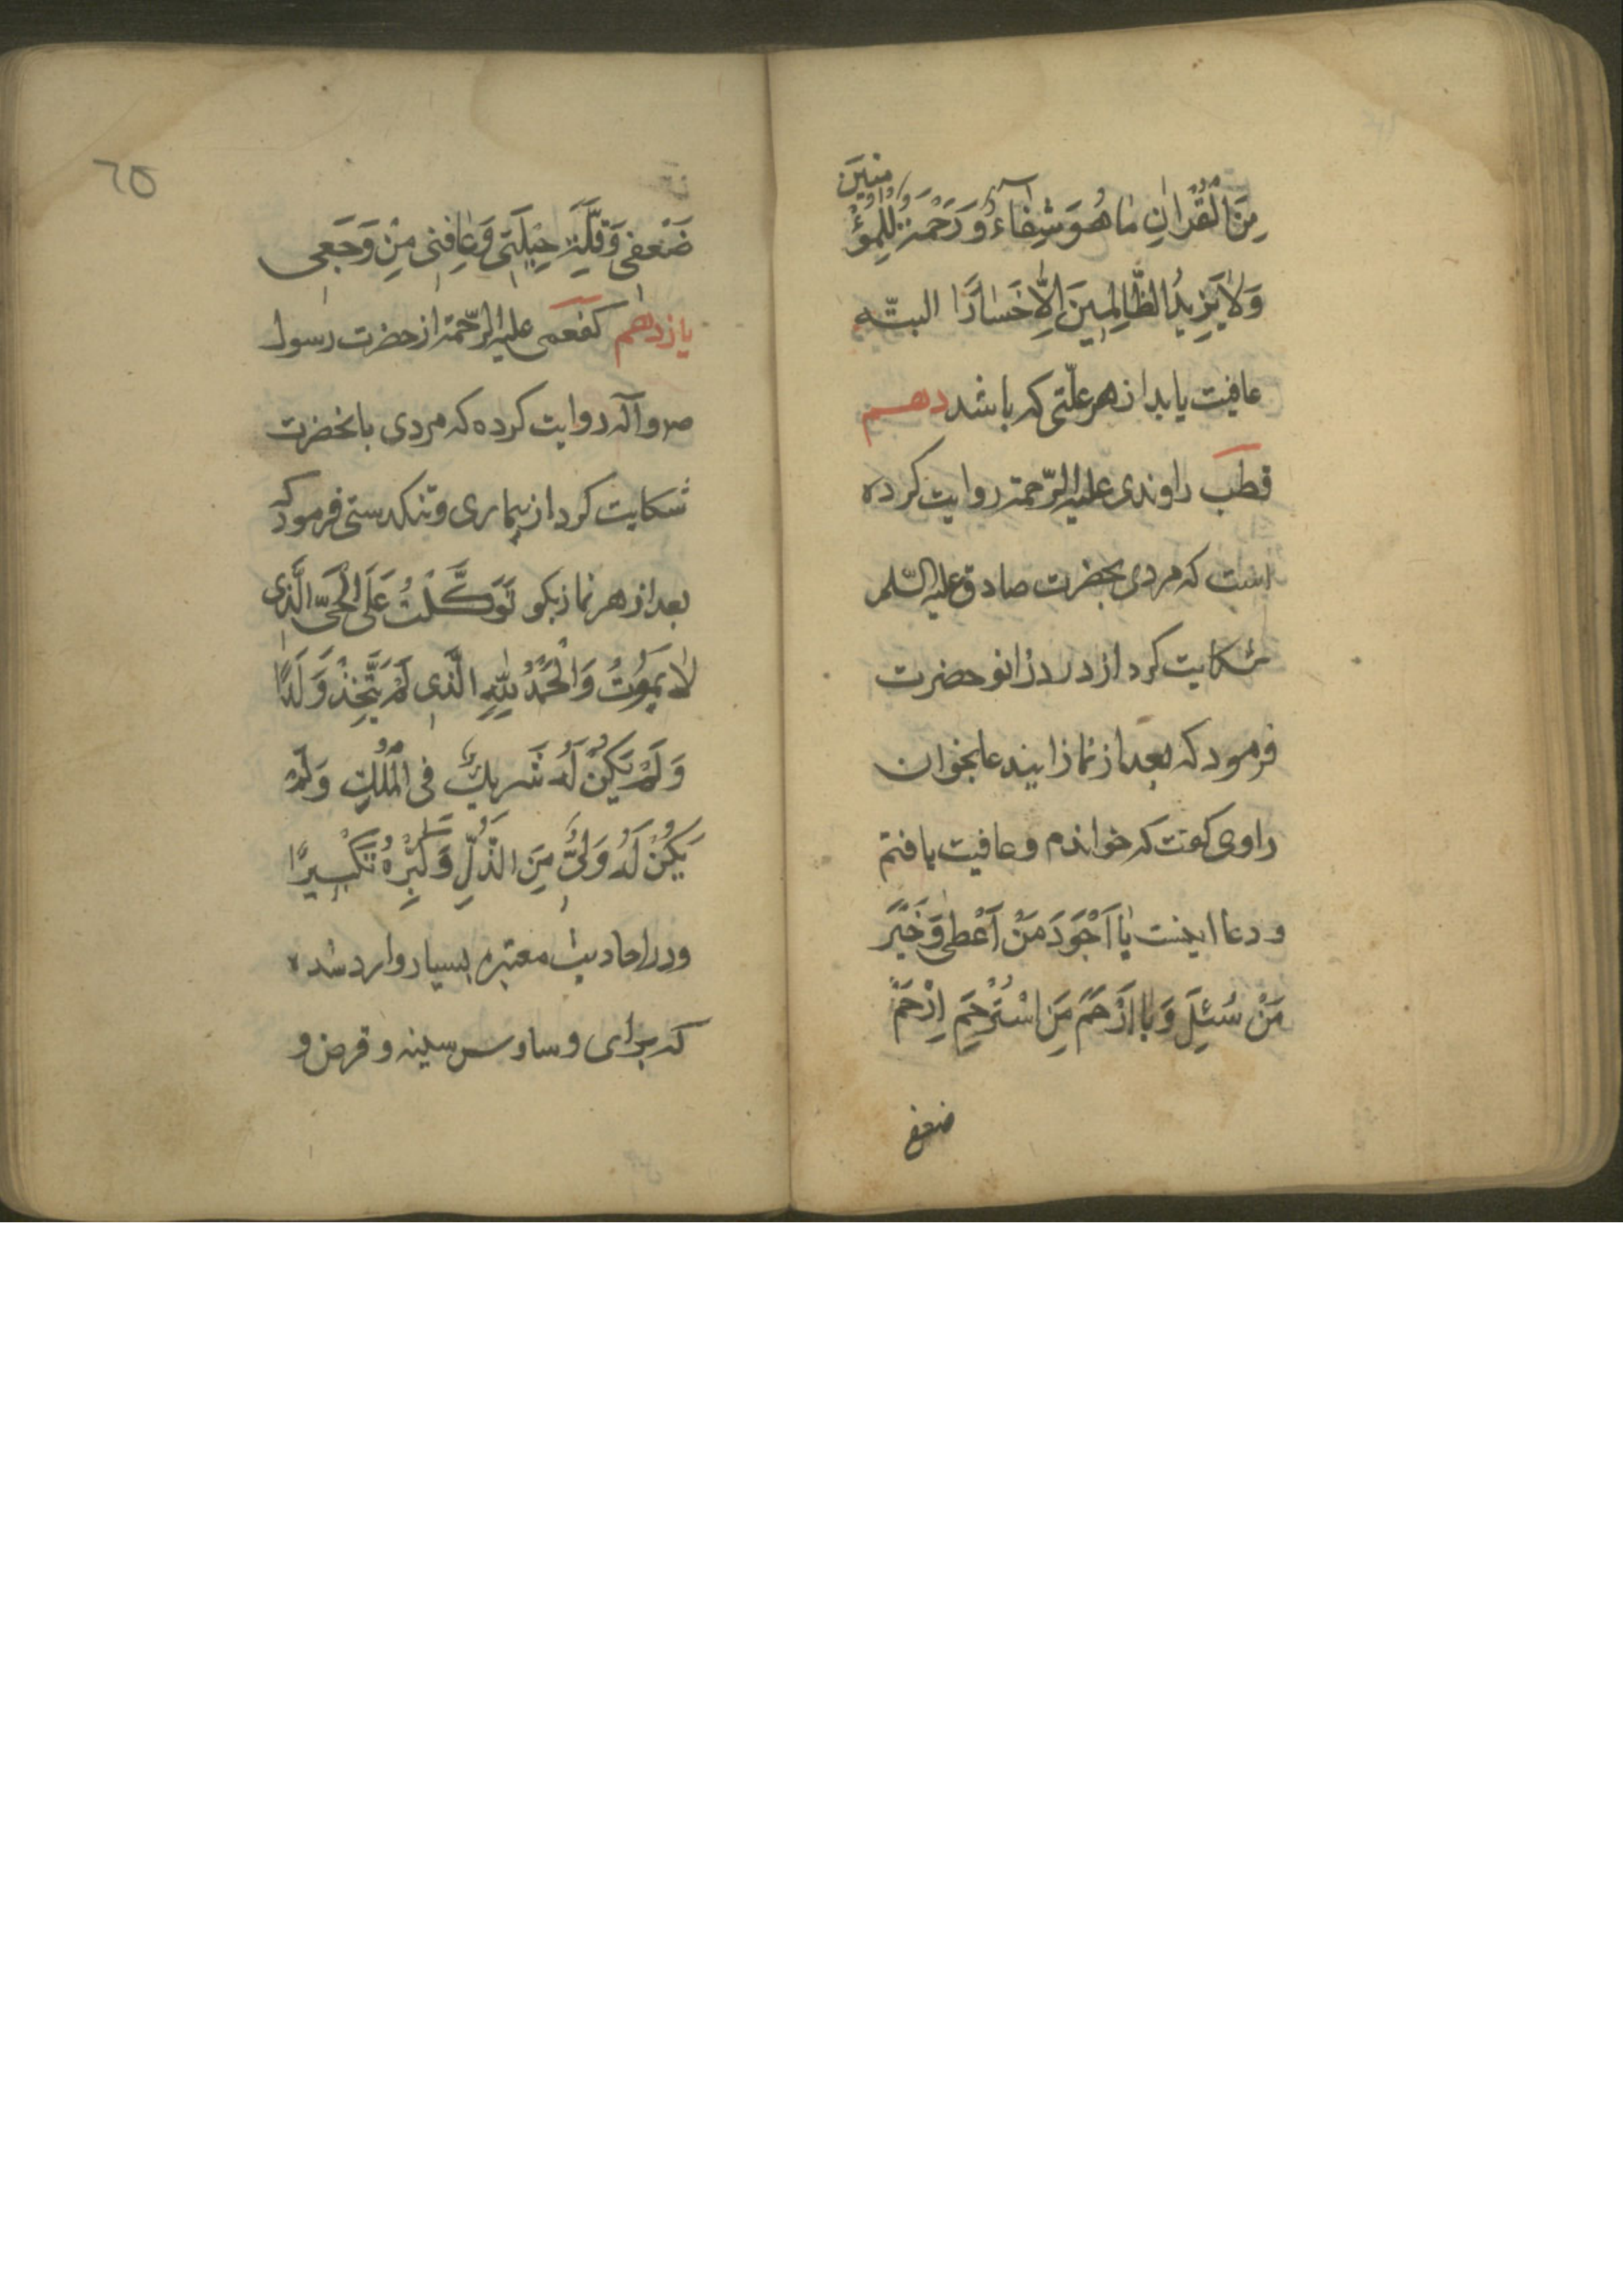 مِنَ الْقُرْاٰنِ مٰا هُوَ شِفٰآءٌ وَ رَحْمَةٌ لِلْمُؤْمِنینَ
وَلاٰ یَزِیدُ الظّٰالِمِینَ اِلّٰا خَسٰارًا البتّه
عافیت یابد از هر علّتی که باشد دهم
قطب راوندی علیه الرّحمة روایت کرده
است که مردی بحضرت صادق علیه السّلم
شکایت کرد از درد زانو حضرت
فرمود که بعد از نماز ایندعا بخوان
راوی کفت که خواندم و عافیت یافتم
و دعا اینست یٰا اَجْوَدَ مَنْ اَعْطٰی وَ خَیْرَ
مَنْ سُئِلَ وَ یٰا اَرْحَمَ مَنِ اسْتُرْحِمَ اِرْحَمْ
ضعفی
65
ضَعْفِی وَ قِلَّةَ حِیلَتِی وَ عٰافِنِی مِنْ وَجَعِی
یازدهم کفعمی علیه الرّحمة از حضرت رسول
ص و آله روایت کرده که مردی بانحضرت
شکایت کرد از بیماری و تنکدستی فرمود که
بعد از هر نماز بکو تَوَکَّلْتُ عَلَی الْحَیِّ الَّذِی
لاٰ یَمُوتُ وَ الْحَمْدُ لِلّٰهِ الَّذِی لَمْ یَتَّخِذْ وَلَدًا
وَ لَمْ یَکُنْ لَهُ شَرِیكٌ فِی الْمُلْكِ وَ لَمْ
یَکُنْ لَهُ وَلِیٌّ مِنَ الذُّلِّ وَ کَبِّرْهُ تَکْبِیرًا
و در احادیث معتبره بسیار وارد شده
که برای وساوس سینه و قرض و